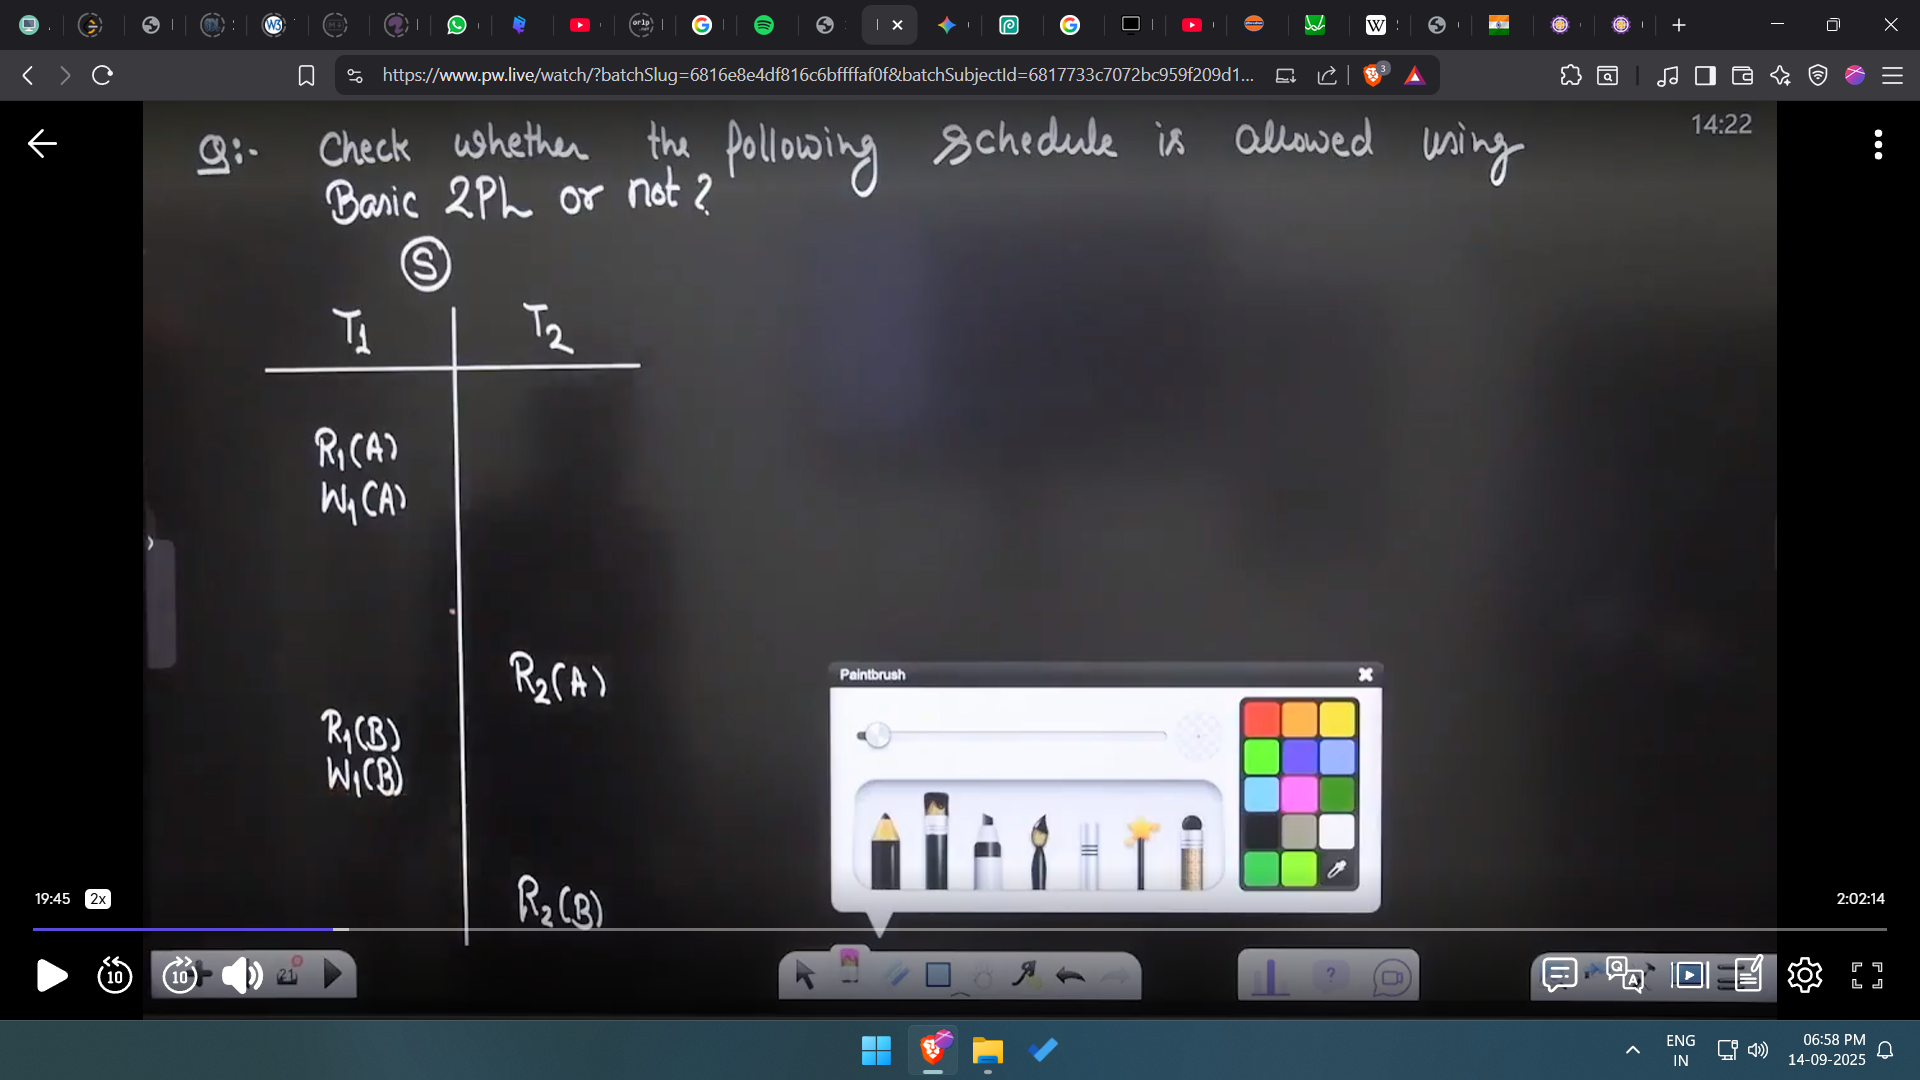 https://www.pw.live/watch/?batchSlug=6816e8e4df816c6bffffaf0f&batchSubjectId=6817733c7072bc959f209d1...
3
14:22
Q:- Check whether the following schedule is allowed using
Basic 2PL or not?
S
T1 T2
R1(A)
W1(A)
R2(A)
R1(B)
W1(B)
R2(B)
Paintbrush
19:45 2x
2:02:14
10
10
21
ENG
IN
06:58 PM
14-09-2025